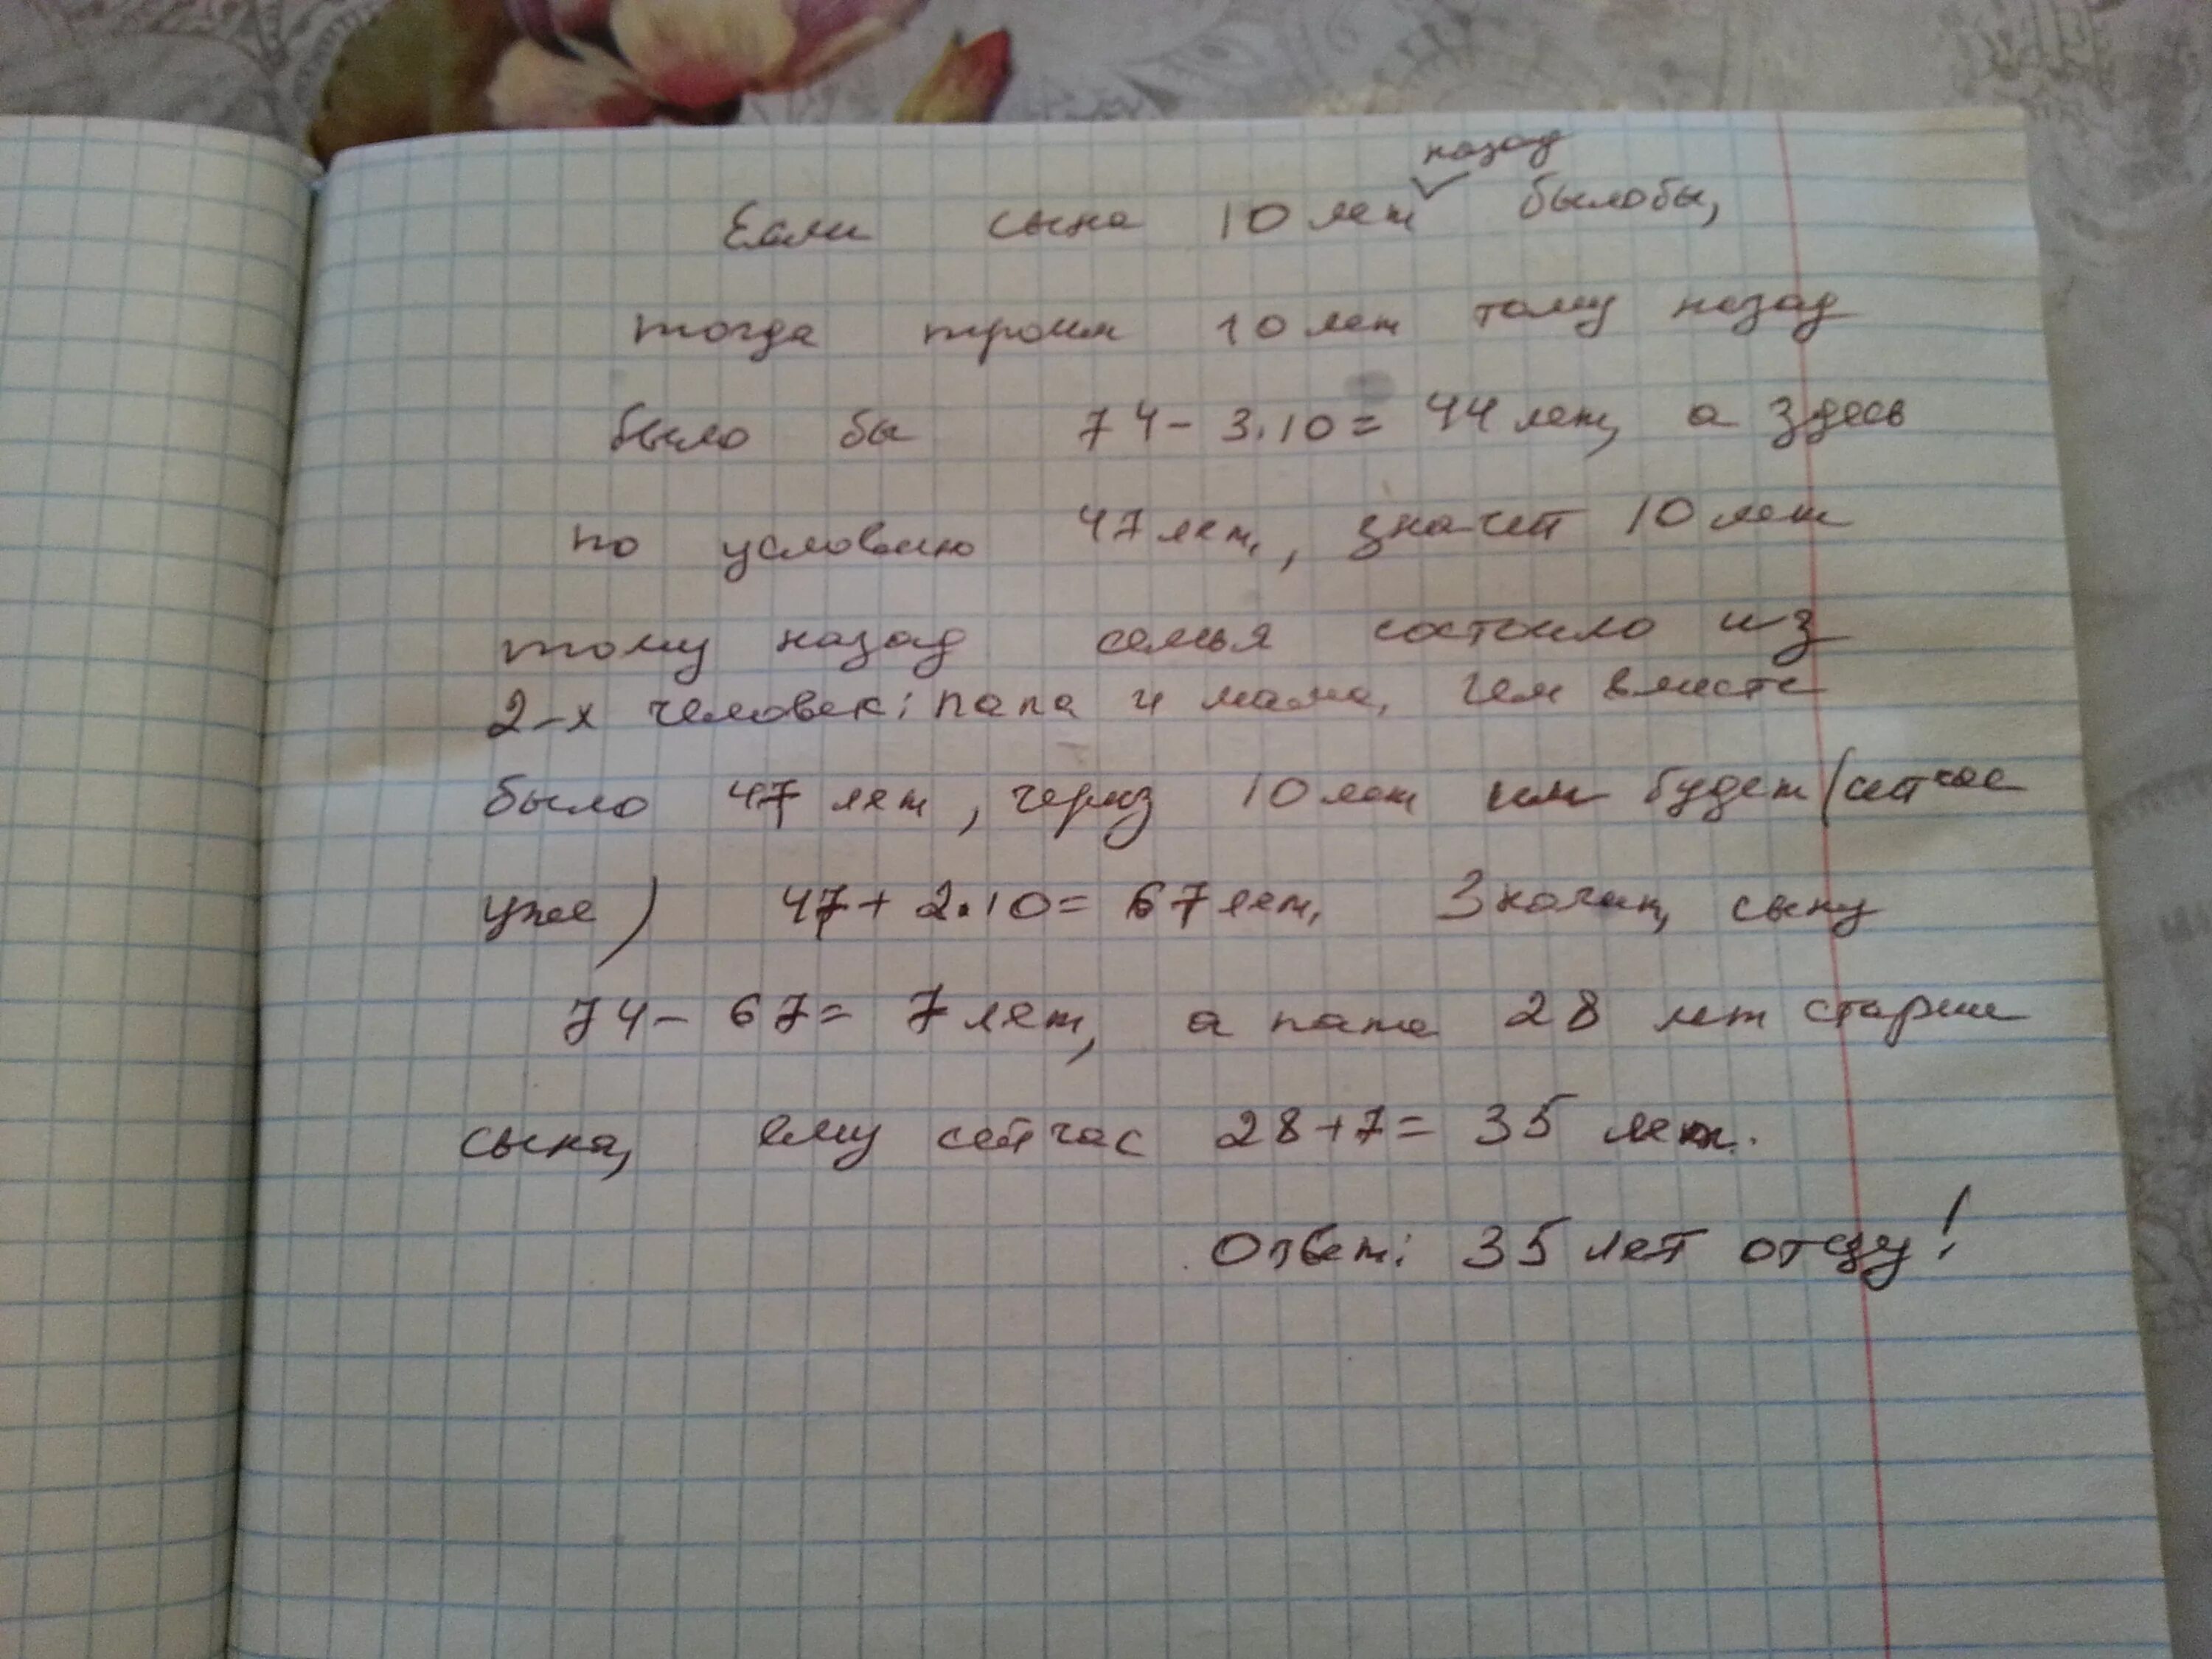 Если сына 10 лет назад былобы,
тогда троим 10 лет тому назад
было бы 74 - 3.10 = 44 лет, а здесь
по условию 47 лет, значет 10 лет
тому назад семья состоило из
2-х человек: папа и мама, чем вместе
было 47 лет, через 10 лет им будет (сейчас
уже) 47 + 2.10 = 67 лет. Значит, сыну
74 - 67 = 7 лет, а папа 28 лет старше
сына, ему сейчас 28 + 7 = 35 лет.
Ответ: 35 лет отцу!